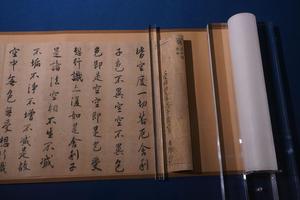 皆空度一切苦厄舍利
子色不異空空不異色
色即是空空即是色受
想行識亦復如是舍利子
是諸法空相不生不滅
不垢不淨不增不減是故
空中無色無受想行識